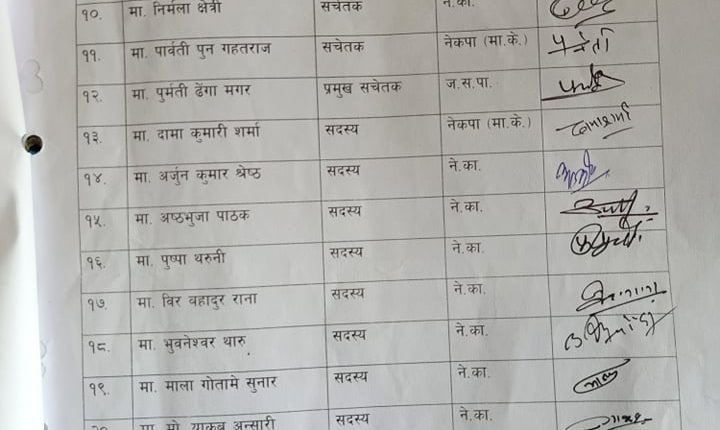 १०. मा. निर्मला क्षेत्री सचेतक ने.का.
११. मा. पार्वती पुन गहतराज सचेतक नेकपा (मा.के.)
१२. मा. पुर्मती ढेंगा मगर प्रमुख सचेतक ज.स.पा.
१३. मा. दामा कुमारी शर्मा सदस्य नेकपा (मा.के.)
१४. मा. अर्जुन कुमार श्रेष्ठ सदस्य ने.का.
१५. मा. अष्ठभुजा पाठक सदस्य ने.का.
१६. मा. पुष्पा थरुनी सदस्य ने.का.
१७. मा. विर वहादुर राना सदस्य ने.का.
१८. मा. भुवनेश्वर थारु सदस्य ने.का.
१९. मा. माला गोतामे सुनार सदस्य ने.का.
२०. मा. मो. याकुव अन्सारी सदस्य ने.का.